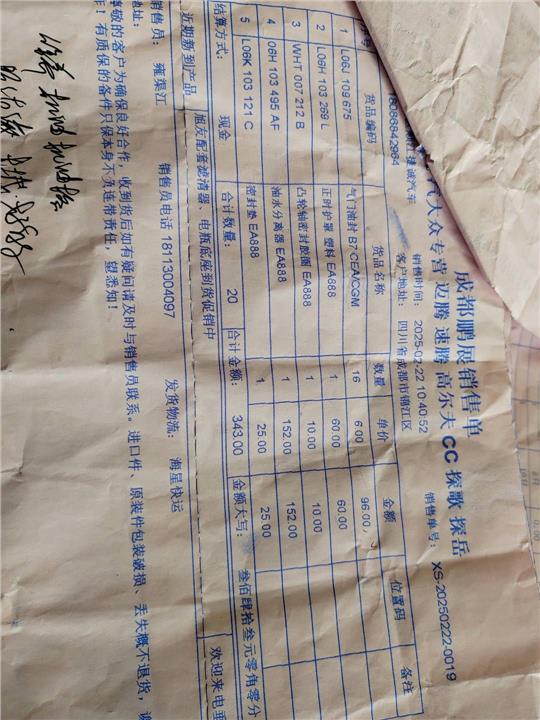 成都鹏展销售单
气大众专营 迈腾 速腾 高尔夫 CC 探歌 探岳
销售时间： 2025-02-22 10:40:52 销售单号： XS-20250222-0019
锦江捷诚汽车 客户地址： 四川省成都市锦江区
18086842984
货品编码 货品名称 数量 单价 金额 位置码 备注
1 L06J 109 675 气门油封 B7/CEA/CGM 16 6.00 96.00
2 L06H 103 269 L 正时护罩 塑料 EA888 1 60.00 60.00
3 WHT 007 212 B 凸轮轴密封胶圈 EA888 1 10.00 10.00
4 06H 103 495 AF 油水分离器 EA888 1 152.00 152.00
5 L06K 103 121 C 密封垫 EA888 1 25.00 25.00
结算方式： 现金 合计数量： 20 合计金额： 343.00 金额大写： 叁佰肆拾叁元零角零分
近期新到产品 旭友配套滤清器、电瓶底座到货促销中 欢迎来电
销售员： 雍渠江 销售员电话 18113004097 发货物流： 海星快运
地址：
尊敬的客户为确保良好合作，收到货后如有疑问请及时与销售员联系。进口件、原装件包装破损、丢失概不退货，谢
作！有质保的备件只保本身不负连带责任，望悉知！